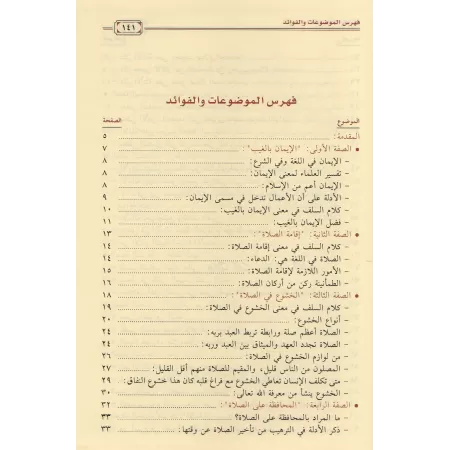 فهرس الموضوعات والفوائد
١٤١
فهرس الموضوعات والفوائد
الموضوع الصفحة
المقدمة: ٥
• الصفة الأولى: "الإيمان بالغيب": ٧
- الإيمان في اللغة وفي الشرع: ٨
- تفسير العلماء لمعنى الإيمان: ٨
- الإيمان أعم من الإسلام: ٨
- الأدلة على أن الأعمال تدخل في مسمى الإيمان: ٩
- كلام السلف في معنى الإيمان بالغيب: ١٠
- فضل الإيمان بالغيب: ١١
• الصفة الثانية: "إقامة الصلاة": ١٣
- كلام السلف في معنى إقامة الصلاة: ١٤
- الصلاة في اللغة هي: الدعاء: ١٤
- الأمور اللازمة لإقامة الصلاة: ١٥
- الطمأنينة ركن من أركان الصلاة: ١٦
• الصفة الثالثة: "الخشوع في الصلاة": ١٨
- كلام السلف في معنى الخشوع في الصلاة: ١٩
- أنواع الخشوع: ٢٠
- الصلاة أعظم صلة ورابطة تربط العبد بربه: ٢٤
- الصلاة تجدد العهد والميثاق بين العبد وربه: ٢٤
- من لوازم الخشوع في الصلاة: ٢٦
- المصلون من الناس قليل، والمقيم للصلاة منهم أقل القليل: ٢٧
- متى تكلف الإنسان تعاطي الخشوع مع فراغ قلبه كان هذا خشوع النفاق: ٢٩
- الخشوع ينشأ من معرفة الله تعالى: ٣٠
• الصفة الرابعة: "المحافظة على الصلاة": ٣٢
- ما المراد بالمحافظة على الصلاة؟ ٣٣
- ذكر الأدلة في الترهيب من تأخير الصلاة عن وقتها: ٣٣